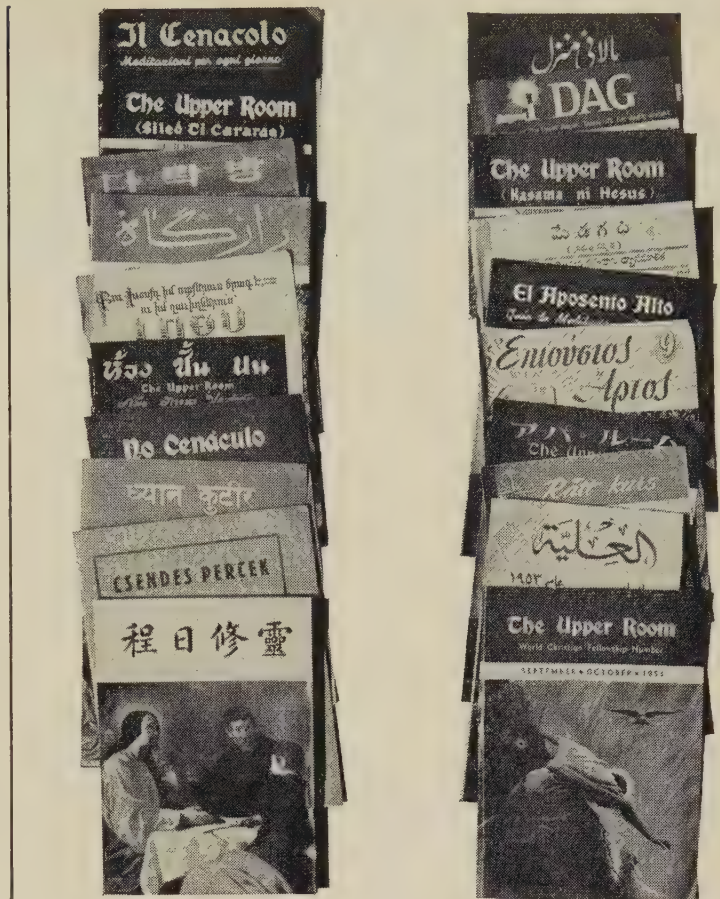 Il Cenacolo
Meditazioni per ogni giorno
The Upper Room
(Siled Ti Cararag)
다락방
رازگاه
ห้อง ชั้น บน
The Upper Room
No Cenáculo
ध्यान कुटीर
CSENDES PERCEK
程日修靈
بالائی منزل
DAG
The Upper Room
(Hasama ni Hesus)
మేడగది
El Aposento Alto
Επιούσιος
Άρτος
アパ・ルーム
The Upp
Rätt kurs
العلّيّة
عام ١٩٥٣
The Upper Room
World Christian Fellowship Number
SEPTEMBER • OCTOBER • 1953